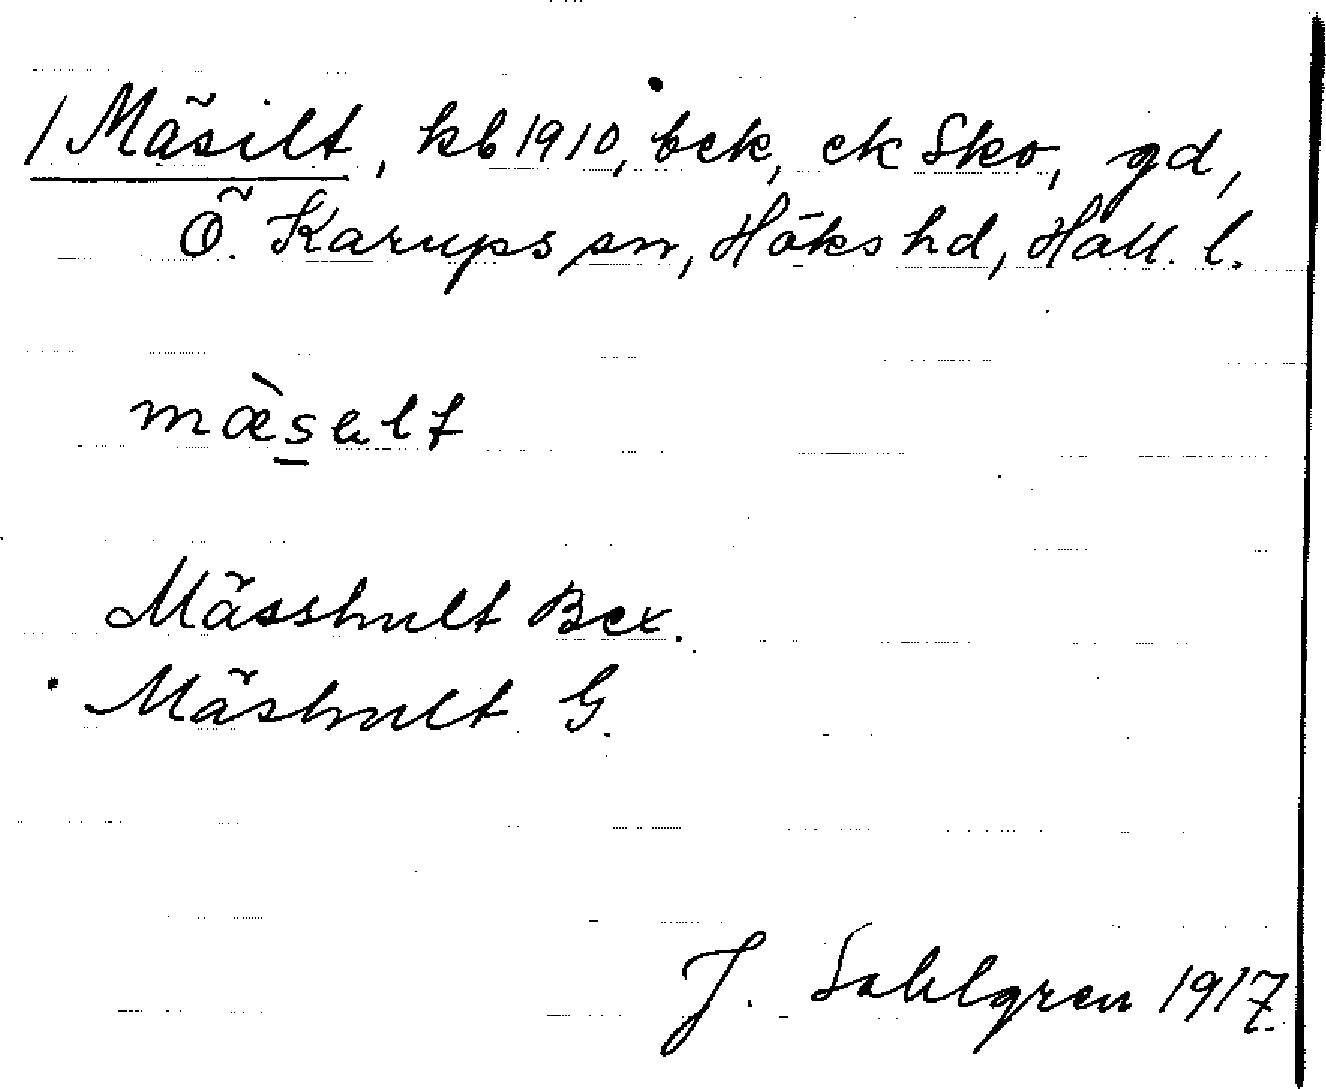 / Mäsilt, kb 1910, bek, ek Sko, gd,
Ö. Karups sn, Höks hd, Hall. l.
mæ̀salt
Mässhult Bex.
Mäshult G.
J. Sahlgren 1917